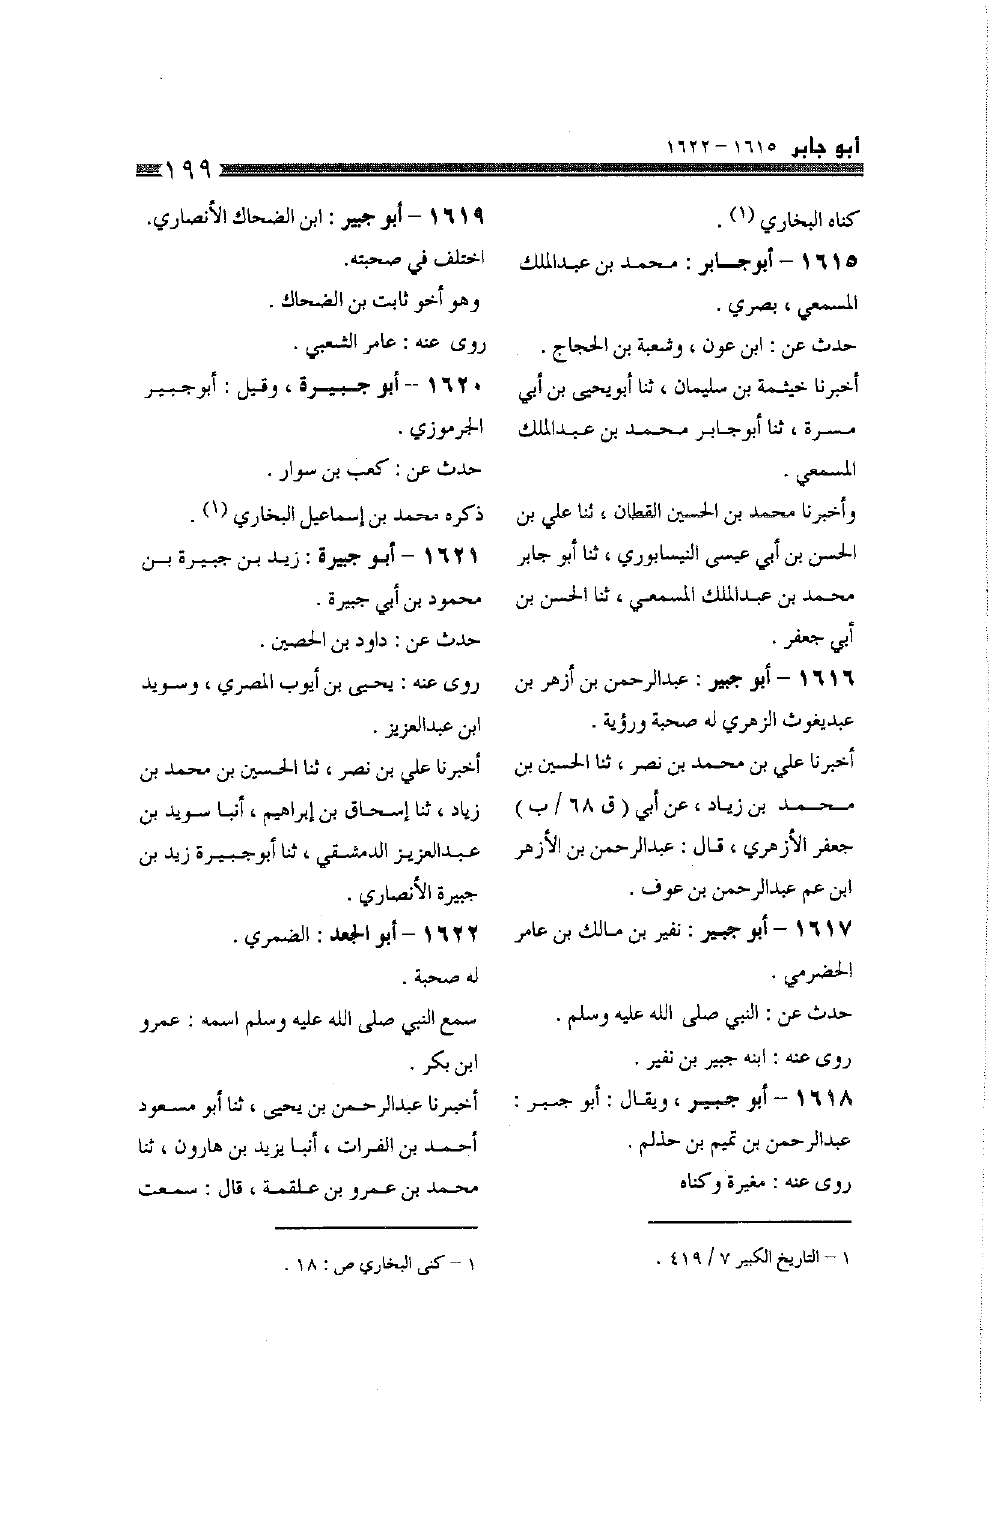 أبو جابر ١٦١٥ - ١٦٢٢
١٩٩
كناه البخاري (١) .
١٦١٥ - أبو جابر : محمد بن عبدالملك
المسمعي ، بصري .
حدث عن : ابن عون ، وشعبة بن الحجاج .
أخبرنا خيثمة بن سليمان ، ثنا أبو يحيى بن أبي
مسرة ، ثنا أبو جابر محمد بن عبدالملك
المسمعي .
وأخبرنا محمد بن الحسين القطان ، ثنا علي بن
الحسن بن أبي عيسى النيسابوري ، ثنا أبو جابر
محمد بن عبدالملك المسمعي ، ثنا الحسن بن
أبي جعفر .
١٦١٦ - أبو جبير : عبدالرحمن بن أزهر بن
عبديغوث الزهري له صحبة ورؤية .
أخبرنا علي بن محمد بن نصر ، ثنا الحسين بن
محمد بن زياد ، عن أبي ( ق ٦٨ / ب )
جعفر الأزهري ، قال : عبدالرحمن بن الأزهر
ابن عم عبدالرحمن بن عوف .
١٦١٧ - أبو جبير : نفير بن مالك بن عامر
الحضرمي .
حدث عن : النبي صلى الله عليه وسلم .
روى عنه : ابنه جبير بن نفير .
١٦١٨ - أبو جبير ، ويقال : أبو جبر :
عبدالرحمن بن تميم بن حذلم .
روى عنه : مغيرة وكناه
١ - التاريخ الكبير ٧ / ٤١٩ .
١٦١٩ - أبو جبير : ابن الضحاك الأنصاري.
اختلف في صحبته.
وهو أخو ثابت بن الضحاك .
روى عنه : عامر الشعبي .
١٦٢٠ -- أبو جبيرة ، وقيل : أبو جبير
الجرموزي .
حدث عن : كعب بن سوار .
ذكره محمد بن إسماعيل البخاري (١) .
١٦٢١ - أبو جبيرة : زيد بن جبيرة بن
محمود بن أبي جبيرة .
حدث عن : داود بن الحصين .
روى عنه : يحيى بن أيوب المصري ، وسويد
ابن عبدالعزيز .
أخبرنا علي بن نصر ، ثنا الحسين بن محمد بن
زياد ، ثنا إسحاق بن إبراهيم ، أنبا سويد بن
عبدالعزيز الدمشقي ، ثنا أبو جبيرة زيد بن
جبيرة الأنصاري .
١٦٢٢ - أبو الجعد : الضمري .
له صحبة .
سمع النبي صلى الله عليه وسلم اسمه : عمرو
ابن بكر .
أخبرنا عبدالرحمن بن يحيى ، ثنا أبو مسعود
أحمد بن الفرات ، أنبا يزيد بن هارون ، ثنا
محمد بن عمرو بن علقمة ، قال : سمعت
١ - كنى البخاري ص : ١٨ .